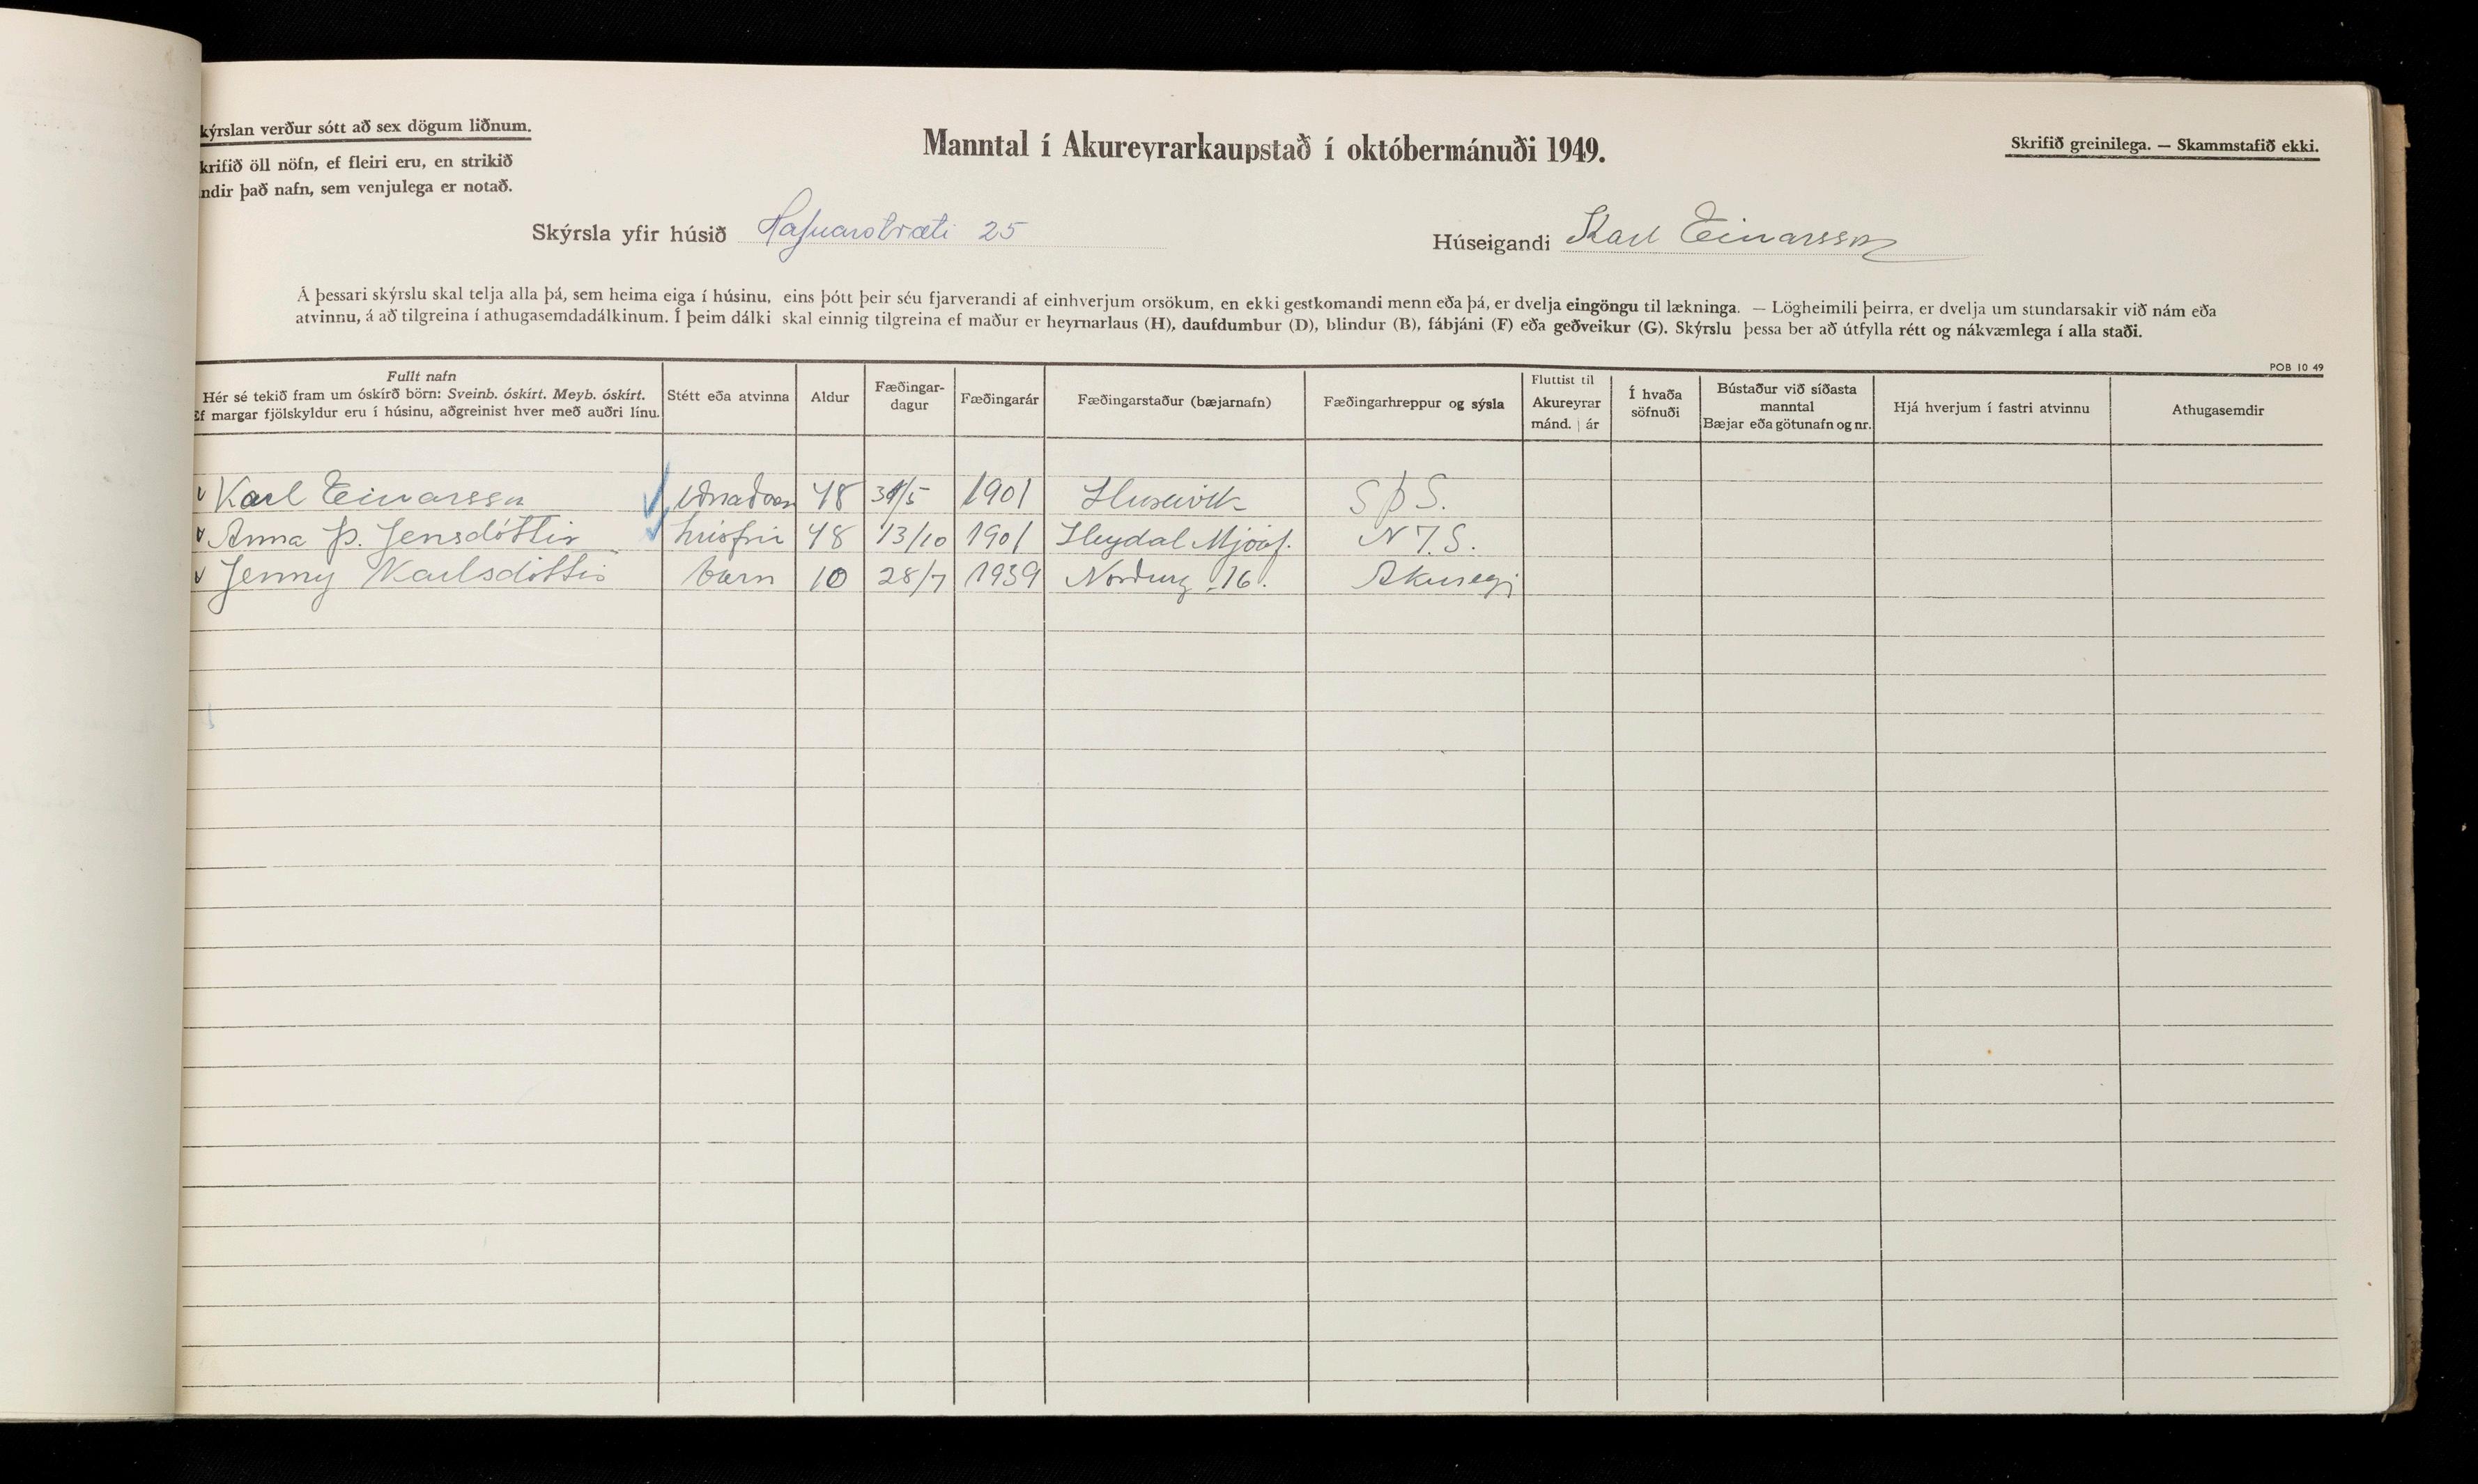 kýrslan verður sótt að sex dögum liðnum.
krifið öll nöfn, ef fleiri eru, en strikið
ndir það nafn, sem venjulega er notað.
Manntal í Akureyrarkaupstað í októbermánuði 1949.
Skrifið greinilega. — Skammstafið ekki.
Skýrsla yfir húsið Hafnarstræti 25
Húseigandi Karl Einarsson
Á þessari skýrslu skal telja alla þá, sem heima eiga í húsinu, eins þótt þeir séu fjarverandi af einhverjum orsökum, en ekki gestkomandi menn eða þá, er dvelja eingöngu til lækninga. — Lögheimili þeirra, er dvelja um stundarsakir við nám eða
atvinnu, á að tilgreina í athugasemdadálkinum. Í þeim dálki skal einnig tilgreina ef maður er heyrnarlaus (H), daufdumbur (D), blindur (B), fábjáni (F) eða geðveikur (G). Skýrslu þessa ber að útfylla rétt og nákvæmlega í alla staði.
POB 10 49
Fullt nafn
Hér sé tekið fram um óskírð börn: Sveinb. óskírt. Meyb. óskírt.
Ef margar fjölskyldur eru í húsinu, aðgreinist hver með auðri línu.
Stétt eða atvinna
Aldur
Fæðingar-
dagur
Fæðingarár
Fæðingarstaður (bæjarnafn)
Fæðingarhreppur og sýsla
Fluttist til
Akureyrar
mánd. | ár
Í hvaða
söfnuði
Bústaður við síðasta
manntal
Bæjar eða götunafn og nr.
Hjá hverjum í fastri atvinnu
Athugasemdir
Karl Einarsson 48 1901 Húsavík S Þ S.
Anna Þ. Jensdóttir húsfrú 48 13/10 1901 Heydal Mjóaf. N Í. S.
Jenny Karlsdóttir barn 10 28/7 1939 Norðurg. 16. Akureyri